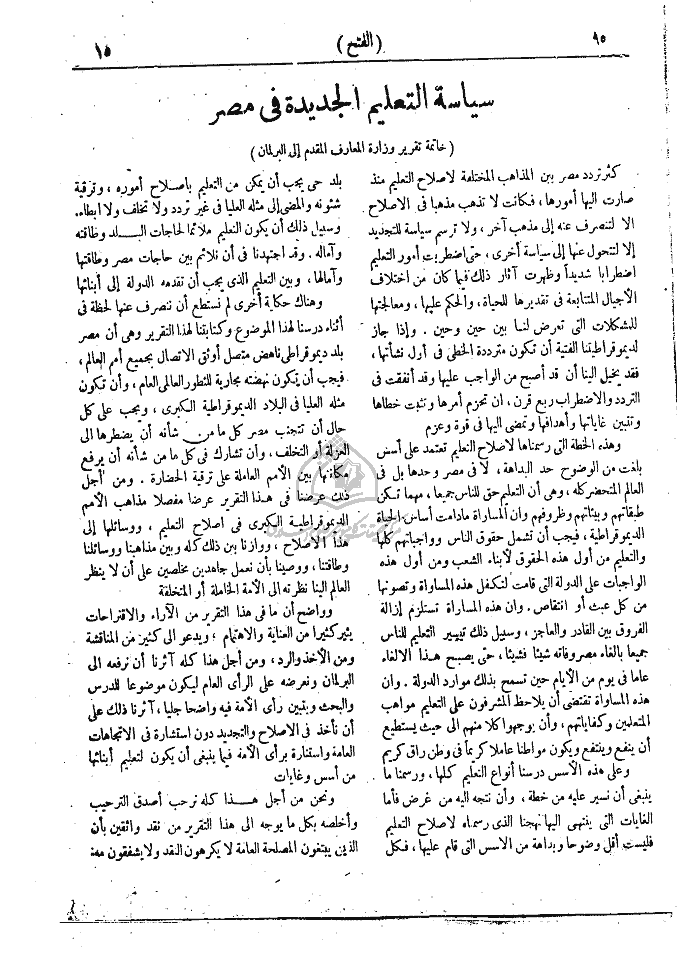 ٩٥
( الفتح )
١٥
سياسة التعليم الجديدة فى مصر
( خاتمة تقرير وزارة المعارف المقدم إلى البرلمان )
كثر تردد مصر بين المذاهب المختلفة لاصلاح التعليم منذ
صارت اليها أمورها ، فكانت لا تذهب مذهبا فى الاصلاح
الا لتنصرف عنه إلى مذهب آخر ، ولا ترسم سياسة للتجديد
إلا لتتحول عنها إلى سياسة أخرى ، حتى اضطربت أمور التعليم
اضطرابا شديداً وظهرت آثار ذلك فيما كان من اختلاف
الأجيال المتتابعة فى تقديرها للحياة ، والحكم عليها ، ومعالجتها
للمشكلات التى تعرض لنا بين حين وحين . وإذا جاز
لديموقراطيتنا الفتية أن تكون مترددة الخطى فى أول نشأتها ،
فقد يخيل الينا أن قد أصبح من الواجب عليها وقد أنفقت فى
التردد والاضطراب ربع قرن ، ان تحزم أمرها وتثبت خطاها
وتتبين غاياتها وأهدافها وتمضى اليها فى قوة وعزم
وهذه الخطة التى رسمناها لاصلاح التعليم تعتمد على أسس
بلغت من الوضوح حد البداهة ، لا فى مصر وحدها بل فى
العالم المتحضر كله ، وهى أن التعليم حق للناس جميعا ، مهما تكن
طبقاتهم وبيئاتهم وظروفهم وان المساواة مادامت أساس الحياة
الديموقراطية ، فيجب أن تشمل حقوق الناس وواجباتهم كلها
والتعليم من أول هذه الحقوق لأبناء الشعب ومن أول هذه
الواجبات على الدولة التى قامت لتكفل هذه المساواة وتصونها
من كل عبث أو انتقاص . وان هذه المساواة تستلزم إزالة
الفروق بين القادر والعاجز ، وسبيل ذلك تيسير التعليم للناس
جميعا بالغاء مصروفاته شيئا فشيئا ، حتى يصبح هذا الالغاء
عاما فى يوم من الأيام حين تسمح بذلك موارد الدولة . وان
هذه المساواة تقتضى أن يلاحظ المشرفون على التعليم مواهب
المتعلمين وكفاياتهم ، وأن يوجهوا كلا منهم الى حيث يستطيع
أن ينفع وينتفع ويكون مواطنا عاملا كريماً فى وطن راق كريم
وعلى هذه الأسس درسنا أنواع التعليم كلها ، ورسمنا ما
ينبغى أن نسير عليه من خطة ، وأن نتجه اليه من غرض فأما
الغايات التى ينتهى اليها نهجنا الذى رسمناه لاصلاح التعليم
فليست أقل وضوحا وبداهة من الاسس التى قام عليها ، فكل
بلد حى يجب أن يمكن من التعليم باصلاح أموره ، وترقية
شئونه والمضى إلى مثله العليا فى غير تردد ولا تخلف ولا ابطاء .
وسبيل ذلك أن يكون التعليم ملائما لحاجات البلد وطاقته
وآماله . وقد اجتهدنا فى أن نلائم بين حاجات مصر وطاقتها
وآمالها ، وبين التعليم الذى يجب أن تقدمه الدولة إلى أبنائها
وهناك حكاية أخرى لم نستطع أن ننصرف عنها لحظة فى
أثناء درسنا لهذا الموضوع وكتابتنا لهذا التقرير وهى أن مصر
بلد ديموقراطى ناهض متصل أوثق الاتصال بجميع أمم العالم ،
فيجب أن يكون نهضته مجارية للتطور العالمى العام ، وأن تكون
مثله العليا فى البلاد الديموقراطية الكبرى ، ويجب على كل
حال أن تتجنب مصر كل ما من شأنه أن يضطرها الى
العزلة أو التخلف ، وأن تشارك فى كل ما من شأنه أن يرفع
مكانتها بين الأمم العاملة على ترقية الحضارة . ومن أجل
ذلك عرضنا فى هذا التقرير عرضا مفصلا مذاهب الأمم
الديموقراطية الكبرى فى اصلاح التعليم ، ووسائلها إلى
هذا الاصلاح ، ووازنا بين ذلك كله وبين مذاهبنا ووسائلنا
وطاقتنا ، ووصينا بأن نعمل جاهدين مخلصين على أن لا ينظر
العالم الينا نظرته الى الأمة الخاملة أو المتخلفة
وواضح أن ما فى هذا التقرير من الآراء والاقتراحات
يثير كثيرا من العناية والاهتمام ؛ ويدعو الى كثير من المناقشة
ومن الأخذ والرد ، ومن أجل هذا كله آثرنا أن نرفعه الى
البرلمان ونعرضه على الرأى العام ليكون موضوعا للدرس
والبحث ويتبين رأى الأمة فيه واضحا جليا ، آثرنا ذلك على
أن نأخذ فى الاصلاح والتجديد دون استشارة فى الاتجاهات
العامة واستنارة برأى الأمة فيما ينبغى أن يكون لتعليم أبنائها
من أسس وغايات
ونحن من أجل هذا كله نرحب أصدق الترحيب
وأخلصه بكل ما يوجه الى هذا التقرير من نقد واثقين بأن
الذين يبتغون المصلحة العامة لا يكرهون النقد ولا يشفقون منه